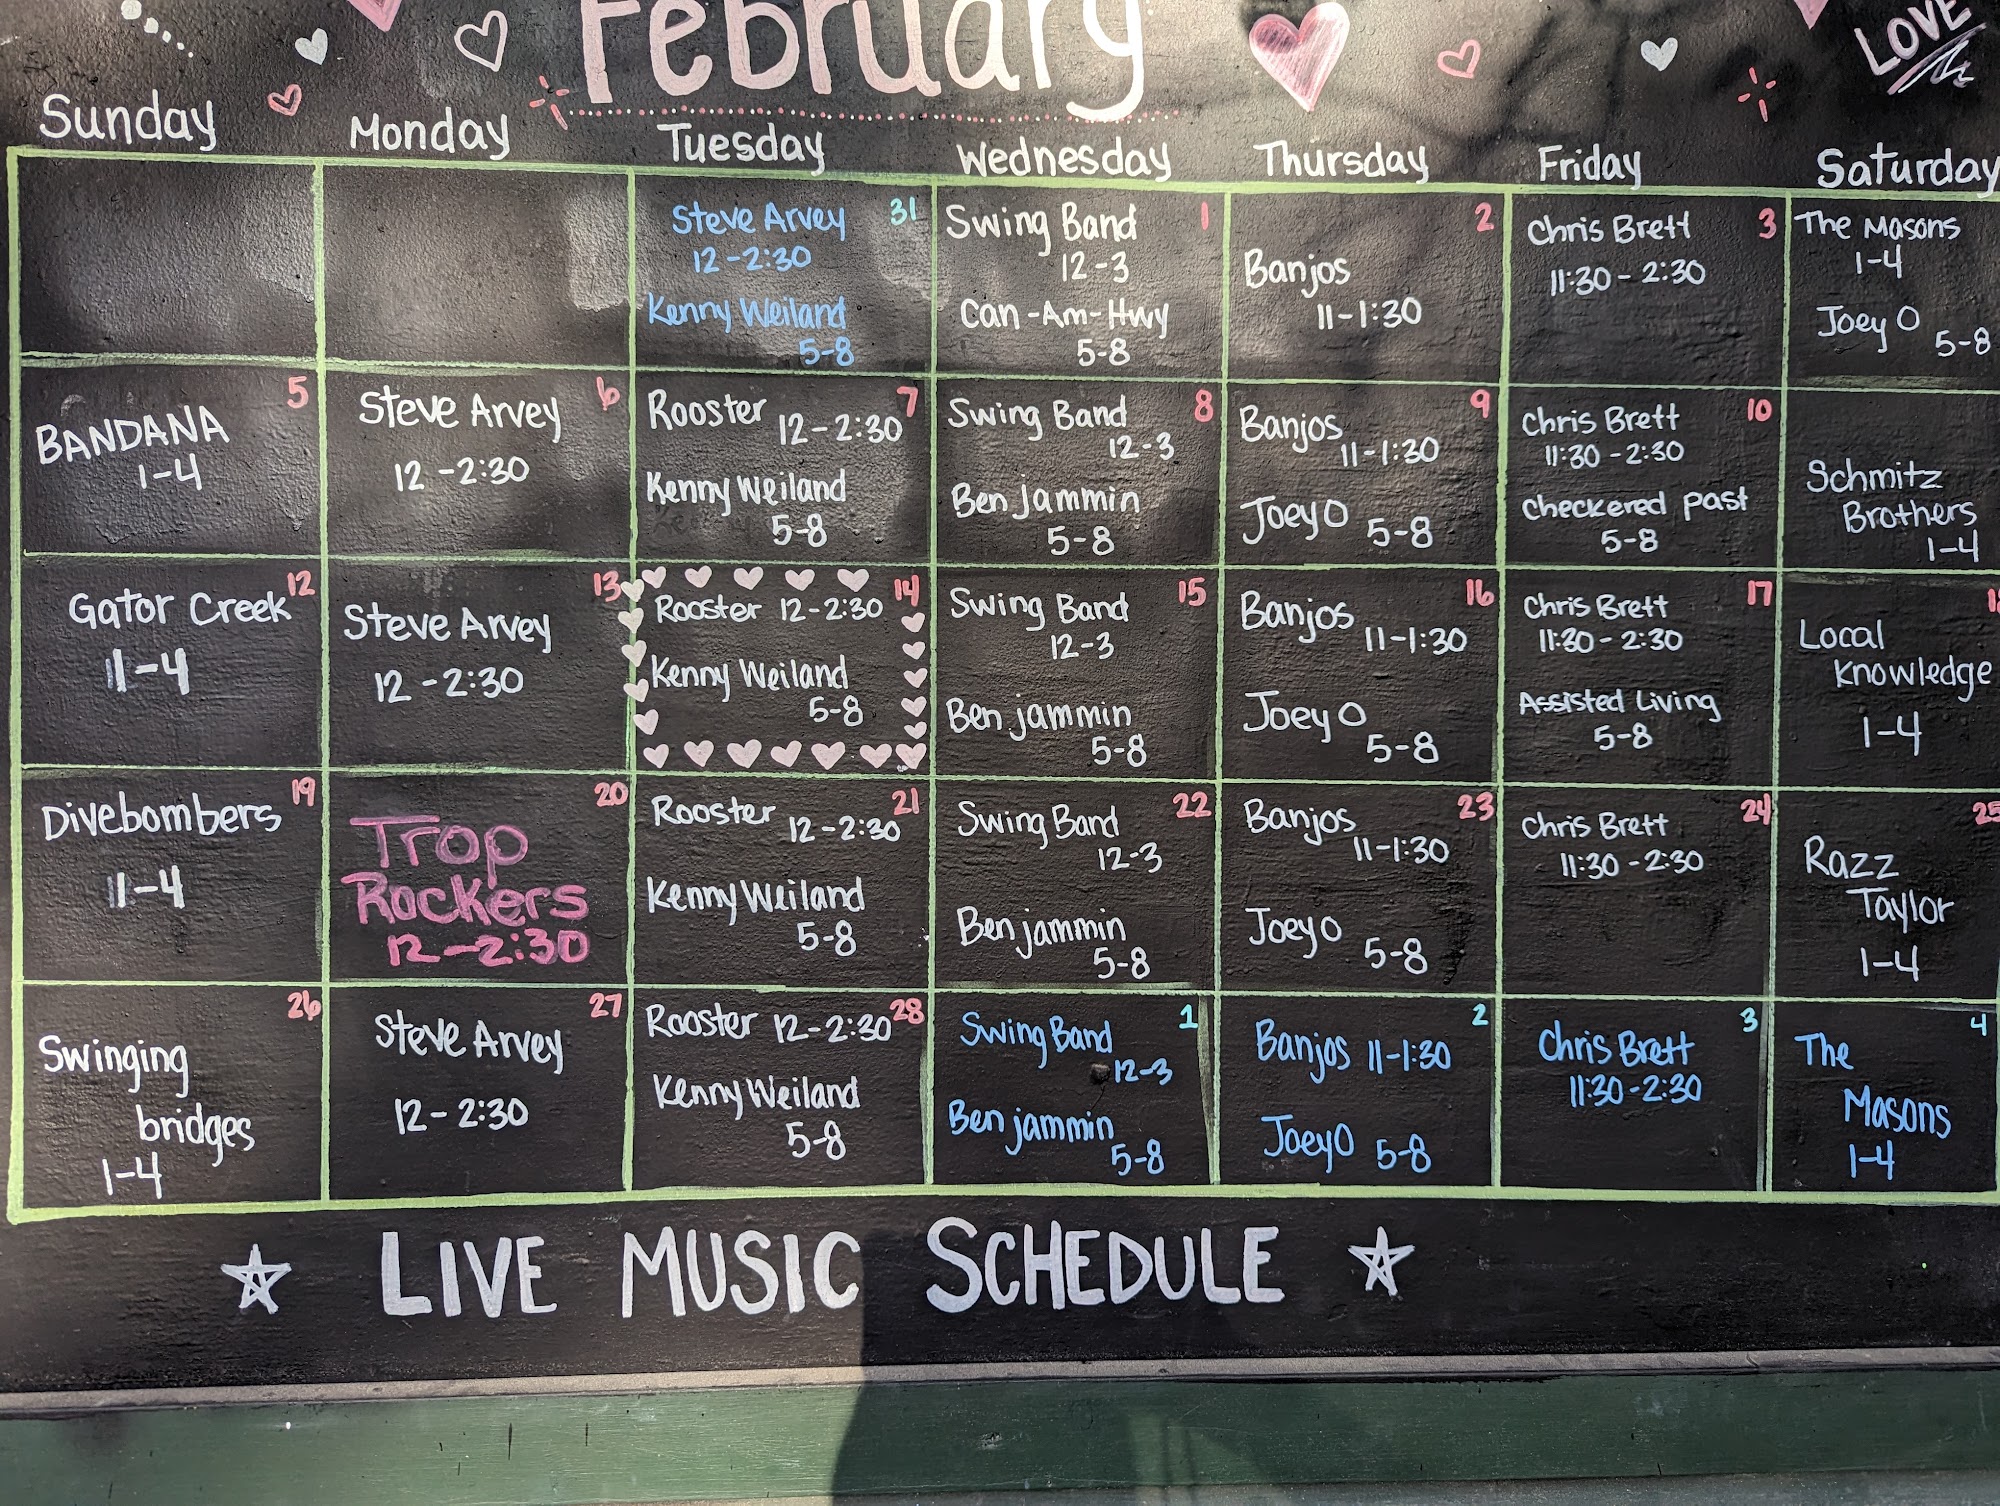 February
LOVE
Sunday Monday Tuesday Wednesday Thursday Friday Saturday
Steve Arvey 31
12-2:30
Kenny Weiland
5-8
Swing Band 1
12-3
Can-Am-Hwy
5-8
2
Banjos
11-1:30
Chris Brett 3
11:30-2:30
The Masons
1-4
Joey O
5-8
5
BANDANA
1-4
Steve Arvey 6
12-2:30
Rooster 12-2:30 7
Kenny Weiland
5-8
Swing Band 8
12-3
Ben jammin
5-8
Banjos 9
11-1:30
Joey O 5-8
Chris Brett 10
11:30-2:30
Checkered past
5-8
Schmitz
Brothers
1-4
Gator Creek 12
11-4
13
Steve Arvey
12-2:30
Rooster 12-2:30 14
Kenny Weiland
5-8
Swing Band 15
12-3
Ben jammin
5-8
Banjos 16
11-1:30
Joey O
5-8
Chris Brett 17
11:30-2:30
Assisted Living
5-8
Local
Knowledge
1-4
Divebombers 19
11-4
20
Trop
Rockers
12-2:30
Rooster 12-2:30 21
Kenny Weiland
5-8
Swing Band 22
12-3
Ben jammin
5-8
Banjos 23
11-1:30
Joey O 5-8
Chris Brett 24
11:30-2:30
25
Razz
Taylor
1-4
26
Swinging
bridges
1-4
Steve Arvey 27
12-2:30
Rooster 12-2:30 28
Kenny Weiland
5-8
Swing Band 1
12-3
Ben jammin
5-8
2
Banjos 11-1:30
Joey O 5-8
Chris Brett 3
11:30-2:30
The 4
Masons
1-4
LIVE MUSIC SCHEDULE